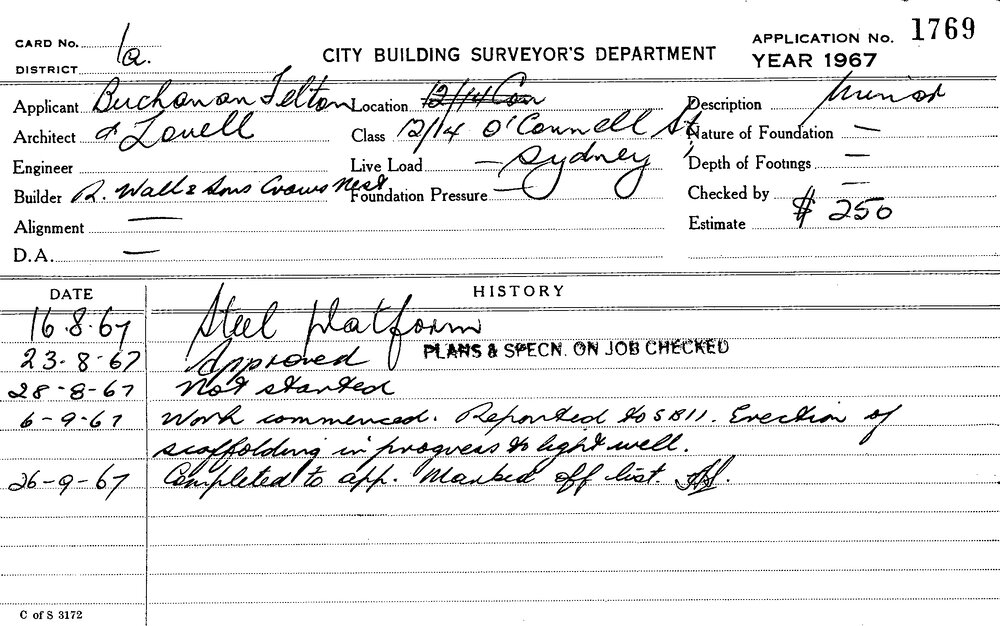 CARD No. 1a.
DISTRICT
CITY BUILDING SURVEYOR'S DEPARTMENT
APPLICATION No. 1769
YEAR 1967
Applicant Buchanan Felton
Architect & Lovell
Engineer
Builder R. Wall & Sons Crows Nest
Alignment —
D.A. —
Location 12/14 Con
Class 12/14 O'Connell St,
Live Load — Sydney
Foundation Pressure —
Description Minor
Nature of Foundation —
Depth of Footings —
Checked by —
Estimate $ 250
DATE HISTORY
16.8.67 Steel platform
23-8-67 Approved PLANS & SPECN. ON JOB CHECKED
28-8-67 Not started
6-9-67 Work commenced. Reported to SB11. Erection of
scaffolding in progress to light well.
26-9-67 Completed to app. Marked off list.
C of S 3172